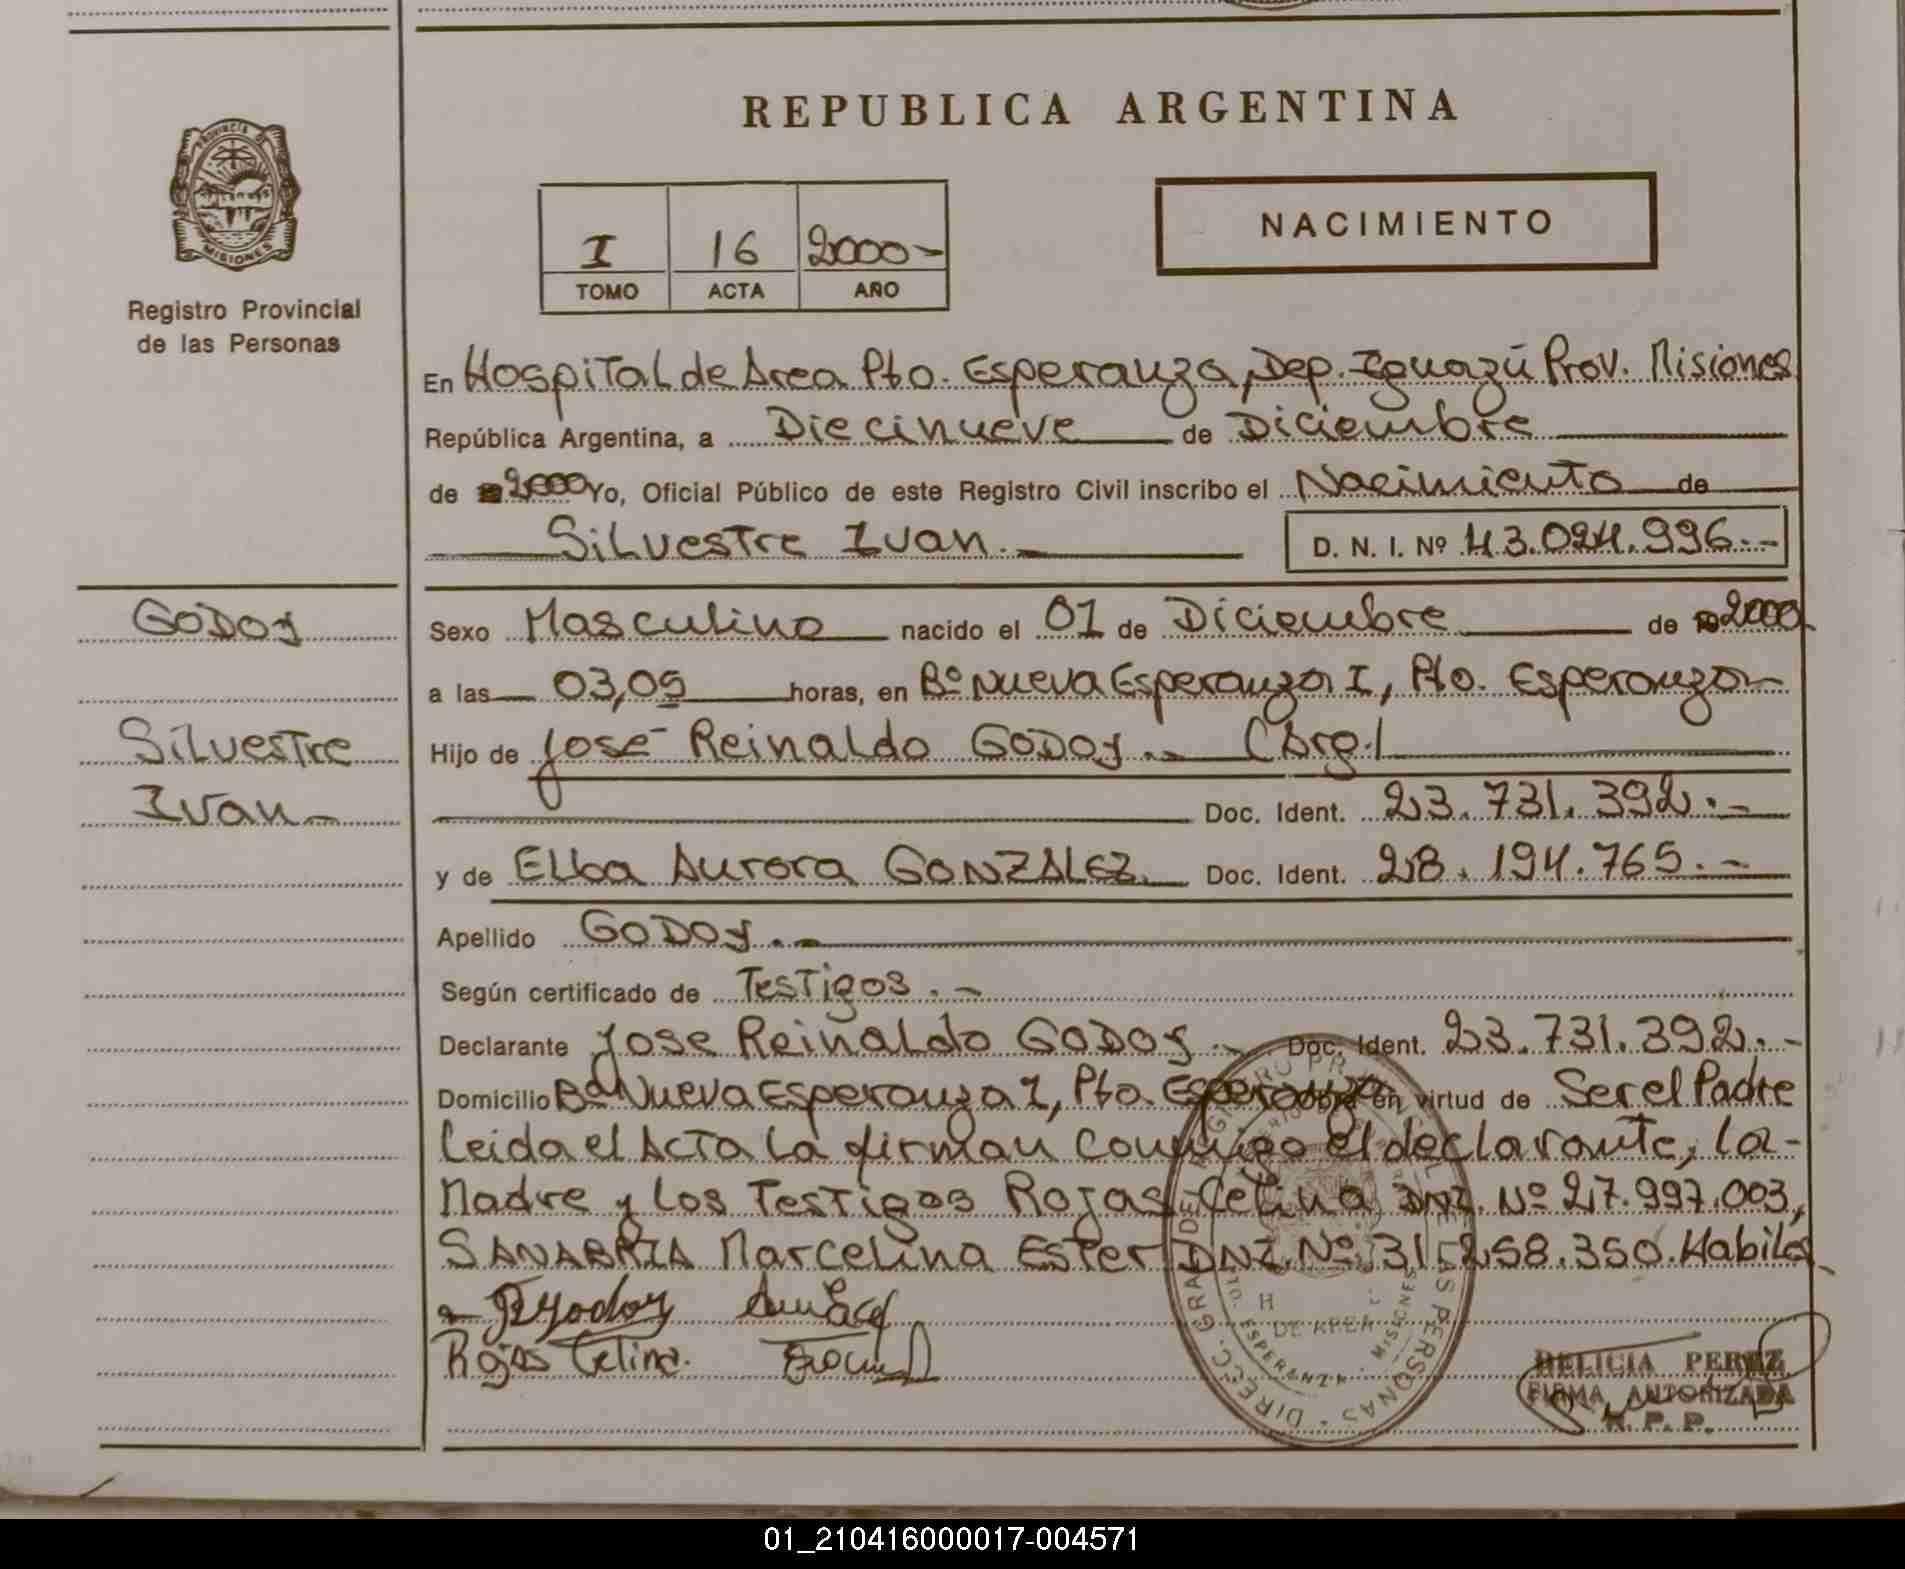 REPUBLICA ARGENTINA
PROVINCIA DE
MISIONES
Registro Provincial
de las Personas
I 16 2000-
TOMO ACTA AÑO
NACIMIENTO
En Hospital de Area Pto. Esperanza, Dep. Iguazú Prov. Misiones
República Argentina, a Diecinueve de Diciembre
de 2000 Yo, Oficial Público de este Registro Civil inscribo el Nacimiento de
Silvestre Ivan.- D. N. I. Nº 43.024.996.-
GODOY
Silvestre
Ivan-
Sexo Masculino nacido el 01 de Diciembre de 2000
a las 03,05 horas, en Bº Nueva Esperanza I, Pto. Esperanza-
Hijo de José Reinaldo GODOY.- (Arg.)
Doc. Ident. 23.731.392.-
y de Elba Aurora GONZALEZ. Doc. Ident. 28.194.765.-
Apellido GODOY.-
Según certificado de Testigos.-
Declarante Jose Reinaldo GODOY.- Doc. Ident. 23.731.392.-
Domicilio Bº Nueva Esperanza I, Pto. Esperanza en virtud de Ser el Padre
Leida el Acta la firman conmigo el declarante, la-
Madre y los Testigos Rojas Celina DNI. Nº 27.997.003,
SANABRIA Marcelina Ester DNI. Nº 31.258.350. Habiles
Rojas Celina.
DE AREA
ESPERANZA - MISIONES
DELICIA PEREZ
FIRMA AUTORIZADA
R. P. P.
01_210416000017-004571